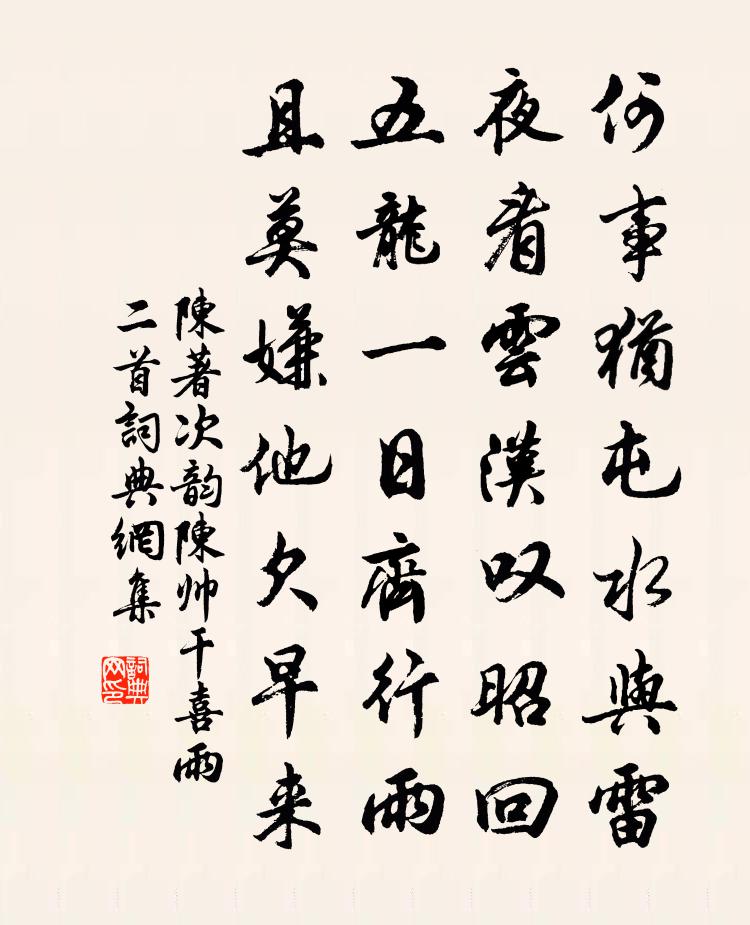 何事猶屯水與雷
夜看雲漢叹昭回
五龍一日齊行雨
且莫嫌他欠早来
陳著次韵陳帅干喜雨
二首詞典網集
詞典网印